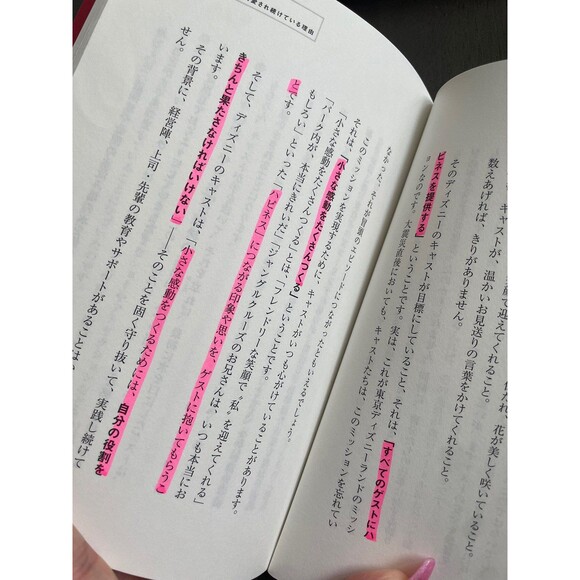 て迎えてくれること。
花が美しく咲いていること。
キャストが、温かいお見送りの言葉をかけてくれること。
数えあげれば、きりがありません。
そのディズニーのキャストが目標にしていること、それは、「すべてのゲストにハ
ピネスを提供する」ということです。実は、これが東京ディズニーランドのミッシ
ョンなのです。大震災直後においても、キャストたちは、このミッションを忘れてい
愛され続けている理由
なかった、それが冒頭のエピソードにつながったともいえるでしょう。
このミッションを実現するために、キャストがいつも心がけていることがあります。
それは、「小さな感動をたくさんつくる」ということです。
「小さな感動をたくさんつくる」とは、「フレンドリーな笑顔で〝私〟を迎えてくれる」
「パーク内が、本当にきれいだ」「ジャングルクルーズのお兄さんは、いつも本当にお
もしろい」といった「ハピネス」につながる印象や思いを、ゲストに抱いてもらうこ
とです。
そして、ディズニーのキャストは、「小さな感動をつくるためには、自分の役割を
きちんと果たさなければいけない」――そのことを固く守り抜いて、実践し続けて
います。
その背景に、経営陣、上司・先輩の教育やサポートがあることは、
せん。